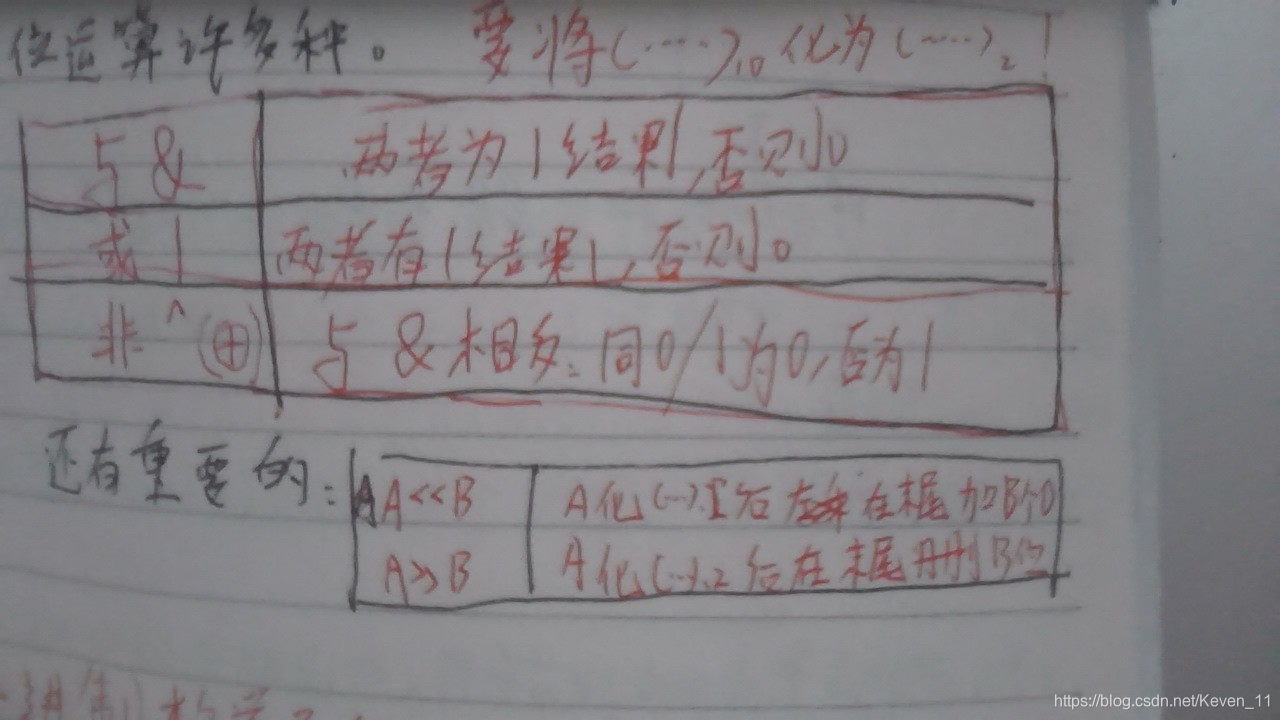 位运算许多种。 要将(……)₁₀化为(……)₂!
与 & 两者为1结果1,否则0
或 | 两者有1结果1,否则0
非 ^ (⊕) 与 & 相反:同0/1为0,否为1
还有重要的:
A<<B A化(…)后在末尾加B个0
A>>B A化(…)₂后在末尾删B位
https://blog.csdn.net/Keven_11